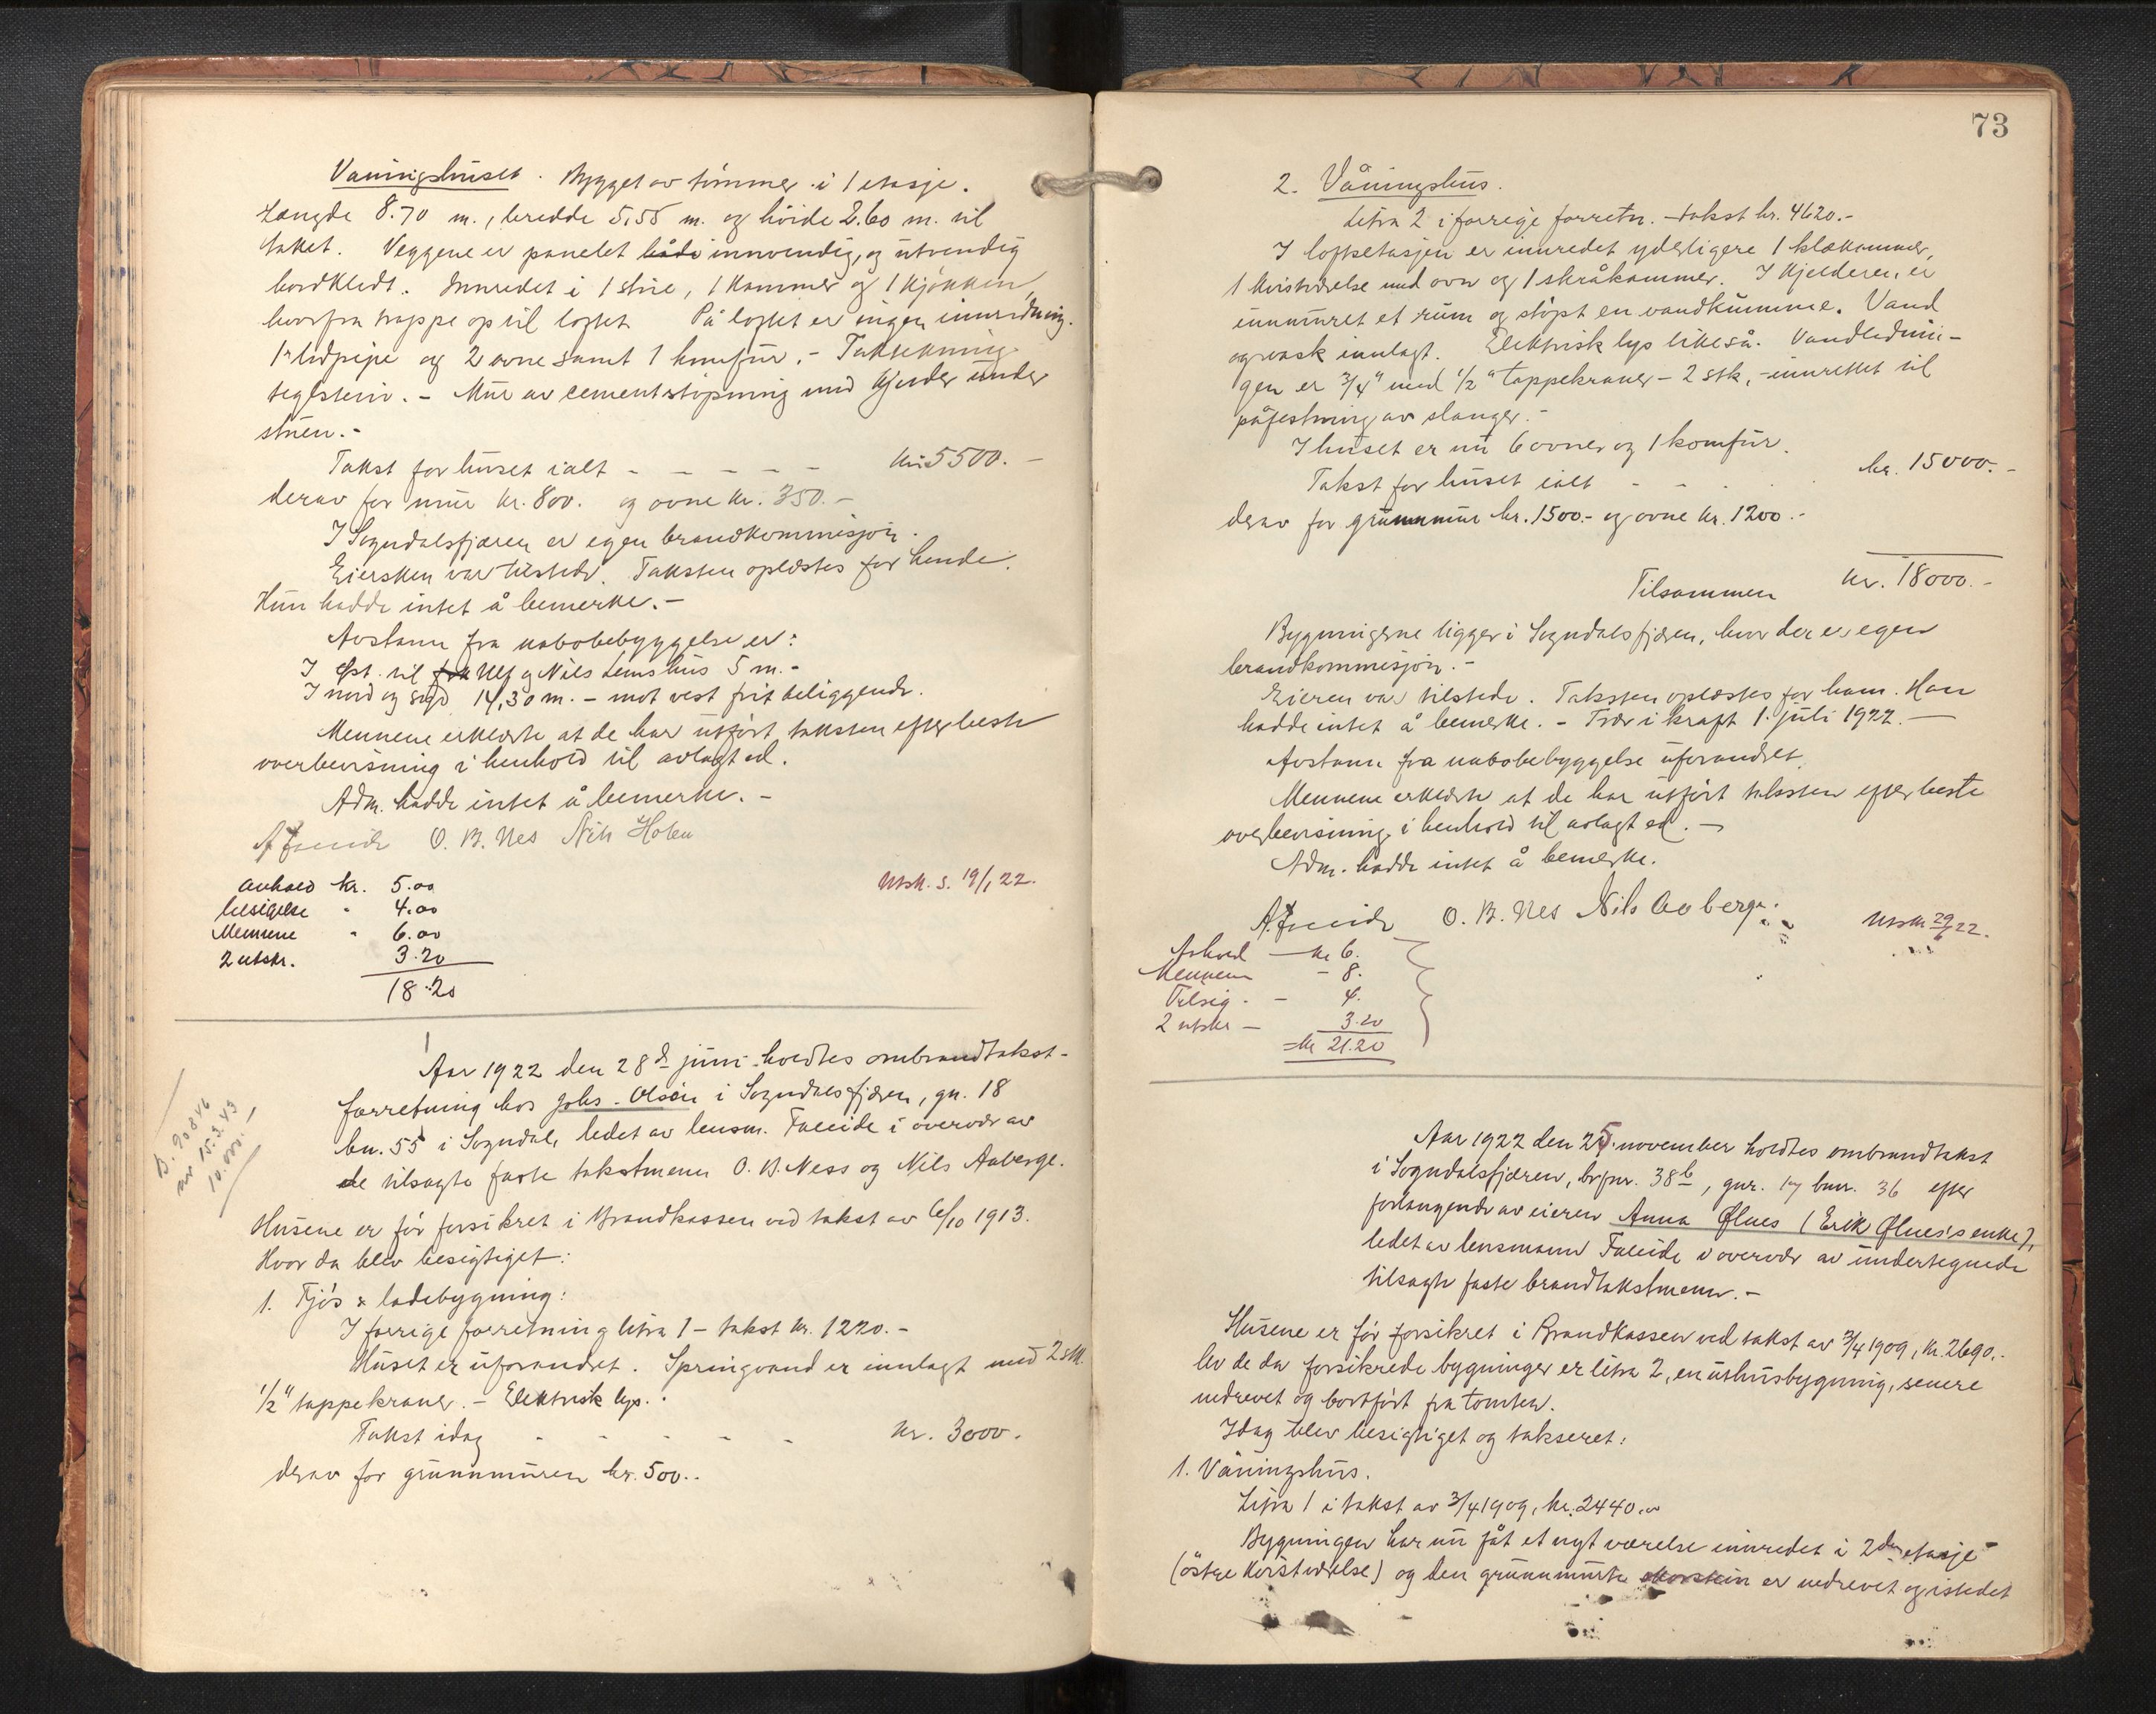 Vaningshuset. Bygget av tömmer i 1 etasje.
Længde 8.70 m., bredde 5,55 m. og höide 2.60 m. til
taket. Veggene er panelet både innvendig, og utvendig
bordkledt. Innredet i 1 stue, 1 kammer og 1 kjökken,
hvorfra trappe op til loftet. På loftet er ingen innredning.
1 rörpipe og 2 ovne samt 1 komfür. - Taktekning
teglstein. - Mur av cementstöpning med kjelder under
stuen. -
Takst for huset ialt - - - - - kr. 5500. -
derav for mur kr. 800. og ovne kr. 350. -
I Sogndalsfjæren er egen brandkommisjon.
Eiersken var tilstede. Taksten oplæstes for hende.
Hun hadde intet å bemerke. -
Avstann fra nabobebyggelse er:
I öst. til Ulf og Nils Lems hus 5 m. -
I nord og syd 14,30 m. - mot vest frit beliggende.
Mennene erklærte at de har utfört taksten efter beste
overbevisning i henhold til avlagt ed.
Adm. hadde intet å bemerke. -
A Faleide O. B. Nes Nils Holen
Utsk. s. 19/1 22.
avhold kr. 5.00
besigelse " 4.00
Mennene " 6.00
2 utskr. 3.20
18.20
Aar 1922 den 28d juni holdtes ombrandtakst-
forretning hos Johs. Olsen i Sogndalsfjæren, gn. 18
bn. 55 i Sogndal, ledet av lensm. Faleide i overvær av
de tilsagte faste takstmenn O. B. Ness og Nils Aaberge.
B. 90846
av 15.3.43
10.000.-
Husene er för forsikret i Brandkassen ved takst av 6/10 1913.
Hvor da blev besigtiget:
1. Fjös & ladebygning:
I forrige forretning litra 1 - takst kr. 1220. -
Huset er uforandret. Springvand er innlagt med 2 stk.
1/2" tappekraner. - Elektrisk lys.
Takst idag - - - - - kr. 3000.
derav for grunnmuren kr. 500..
73
2. Våningshus.
Litra 2 i forrige forretn. - takst kr. 4620.-
I loftsetasjen er innredet yderligere 1 klækammer,
1 kvistværelse med ovn og 1 skråkammer. I kjelderen er
innmuret et rum og stöpt en vandkumme. Vand
og vask innlagt. Elektrisk lys likeså. Vandlednin-
gen er 3/4" med 1/2" tappekraner - 2 stk, - innrettet til
påfestning av slanger. -
I huset er nu 6 ovner og 1 komfür.
Takst for huset ialt - - . . kr. 15000. -
derav for grunnmur kr. 1500.- og ovne kr. 1200.-
Tilsammen kr. 18000. -
Bygningerne ligger i Sogndalsfjæren, hvor der er egen
brandkommisjon. -
Eieren var tilstede. Taksten oplæstes for ham. Han
hadde intet å bemerke. - Trær i kraft 1. juli 1922. -
Avstann fra nabobebyggelse uforandret.
Mennene erklærte at de har utfört taksten efter beste
overbevisning i henhold til avlagt ed. -
Adm. hadde intet å bemerke.
A. Faleide O. B. Nes Nils Aaberge.
Utskr. 29/6 22.
Avhold - kr 6.
Mennene - 8.
Besig. - 4.
2 utskr - 3.20
= kr 21.20
Aar 1922 den 25. november holdtes ombrandtakst
i Sogndalsfjæren, br.fnr. 38b, gnr. 17 bnr. 36 efter
forlangende av eieren Anna Ølnes (Erik Ølnes's enke),
ledet av lensmann Faleide i overvær av undertegnede
tilsagte faste brandtakstmenn. -
Husene er för forsikret i Brandkassen ved takst av 3/4 1909, kr. 2690.-
Av de da forsikrede bygninger er litra 2, en uthusbygning, senere
nedrevet og bortfört fra tomten.
Idag blev besigtiget og takseret:
1. Våningshus.
Litra 1 i takst av 3/4 1909, kr. 2440.00
Bygningen har nu fåt et nyt værelse innredet i 2den etasje
(östre kvistværelse) og den grunnmurte skorstein er nedrevet og istedet